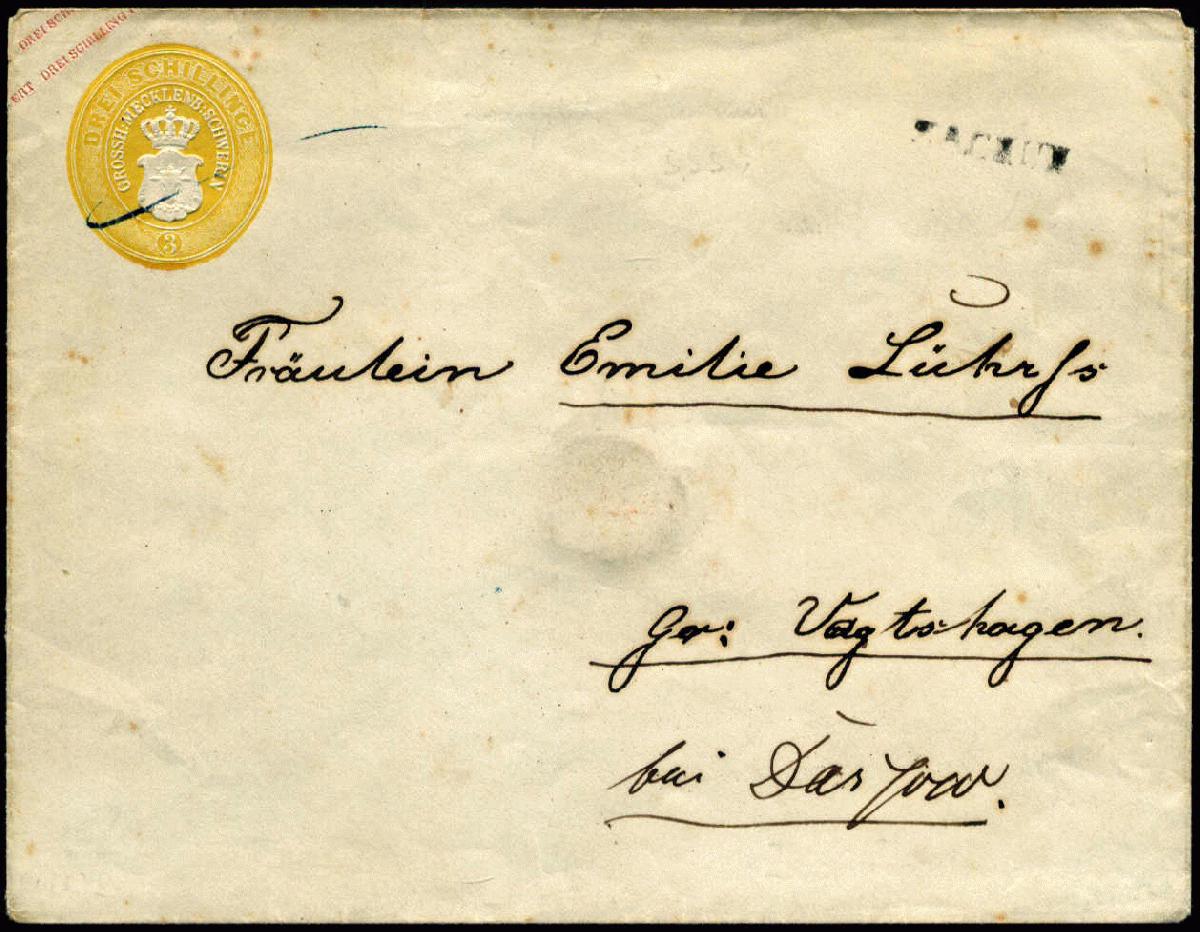 DREI SCH
ERT DREI SCHILLING
DREI SCHILLING
GROSSH: MECKLENB: SCHWERIN
3
ZACHUN
Fräulein Emilie Lührss
Gr: Vogtshagen.
bei Dassow.